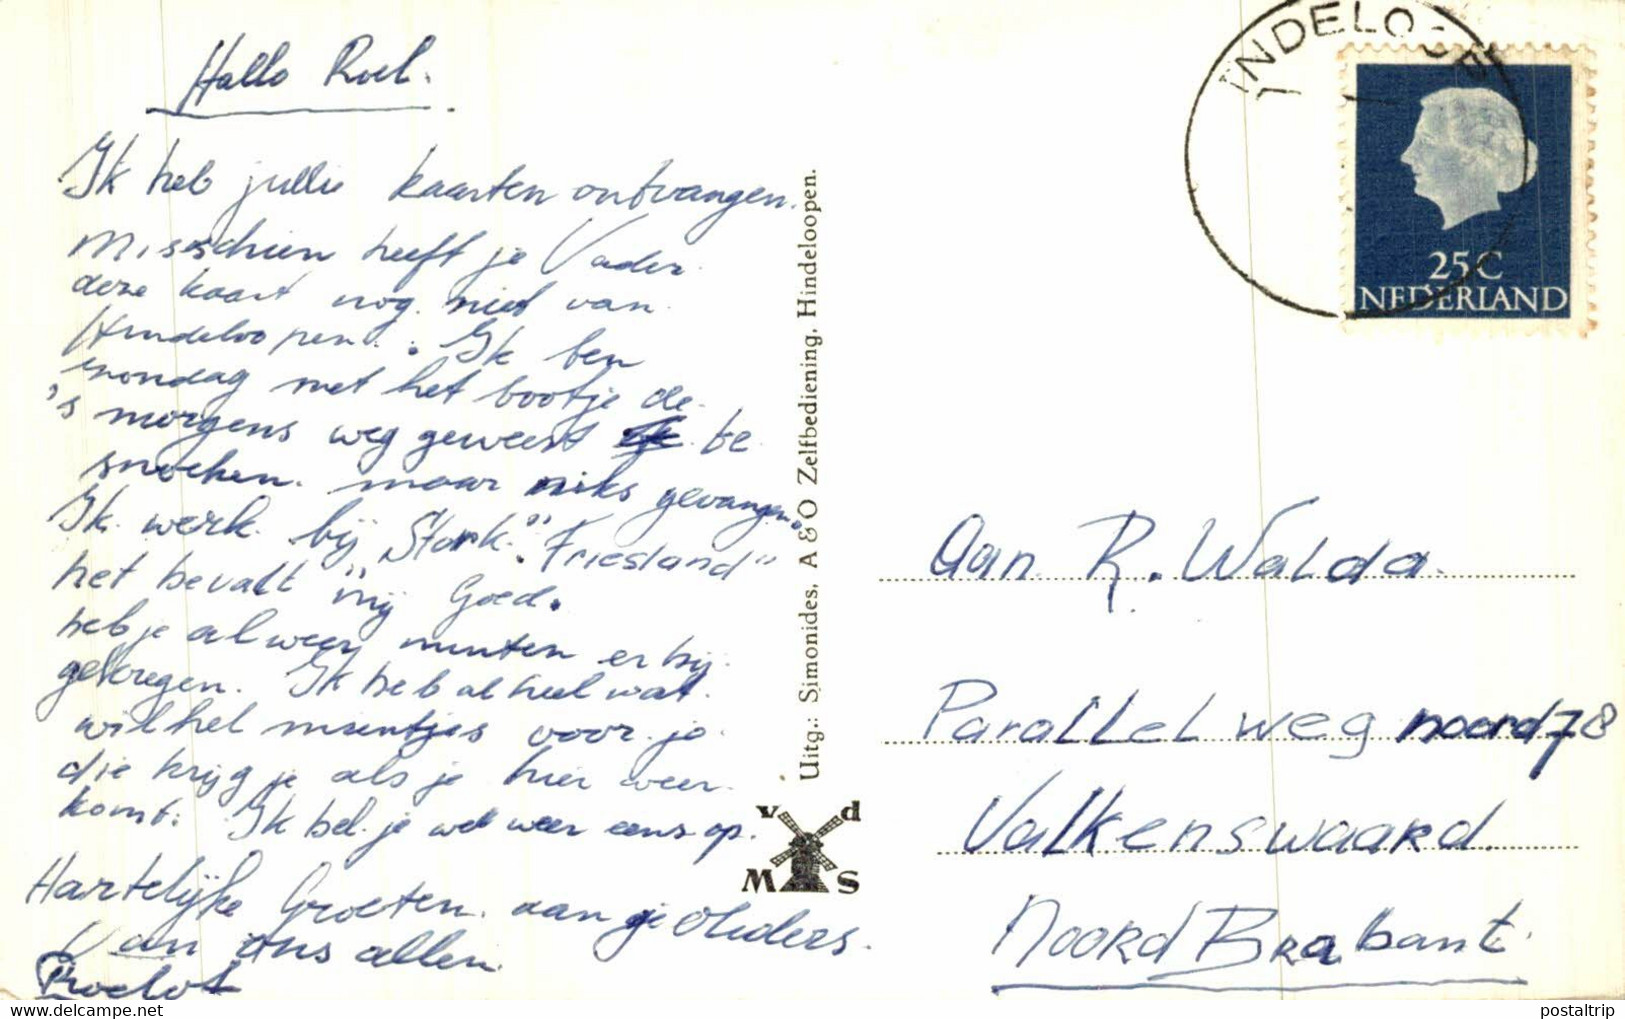 Hallo Roel.
Ik heb jullie kaarten ontvangen.
Misschien heeft je Vader
deze kaart nog niet van
Hindeloopen. Ik ben
mondag met het bootje de
's morgens weg geweest te be
snoeken. maar niks gevangen.
Ik werk bij „Stork." „Friesland"
het bevalt mij Goed.
heb je al weer munten er bij
gekregen. Ik heb al heel wat
wilhelmientjes voor je
die krijg je als je hier weer
komt. Ik bel je wel weer eens op.
Hartelijke Groeten. aan je Ouders.
Van ons allen.
Roelof
Uitg.: Simonides, A & O Zelfbediening, Hindeloopen.
v d
M S
INDELOOPE
25 C
NEDERLAND
Aan R. Walda.
Parallelweg noord 78
Valkenswaard.
Noord Brabant.
postaltrip